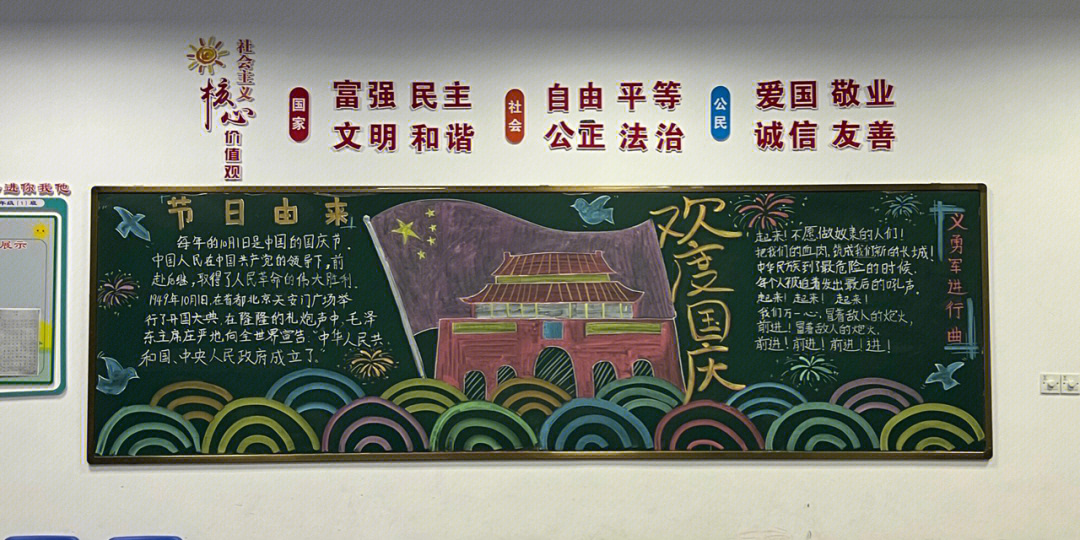 社会主义
核心
价值观
国家
富强 民主
文明 和谐
社会
自由 平等
公正 法治
公民
爱国 敬业
诚信 友善
进你我他
展示
节日由来
每年的10月1日是中国的国庆节。
中国人民在中国共产党的领导下,前
赴后继,取得了人民革命的伟大胜利.
1949年10月1日,在首都北京天安门广场举
行了开国大典,在隆隆的礼炮声中,毛泽
东主席庄严地向全世界宣告:"中华人民共
和国、中央人民政府成立了"
欢度国庆
起来!不愿做奴隶的人们!
把我们的血肉,筑成我们新的长城!
中华民族到了最危险的时候.
每个人被迫着发出最后的吼声.
起来!起来!起来!
我们万一心,冒着敌人的炮火,
前进!冒着敌人的炮火,
前进!前进!前进!进!
义勇军进行曲